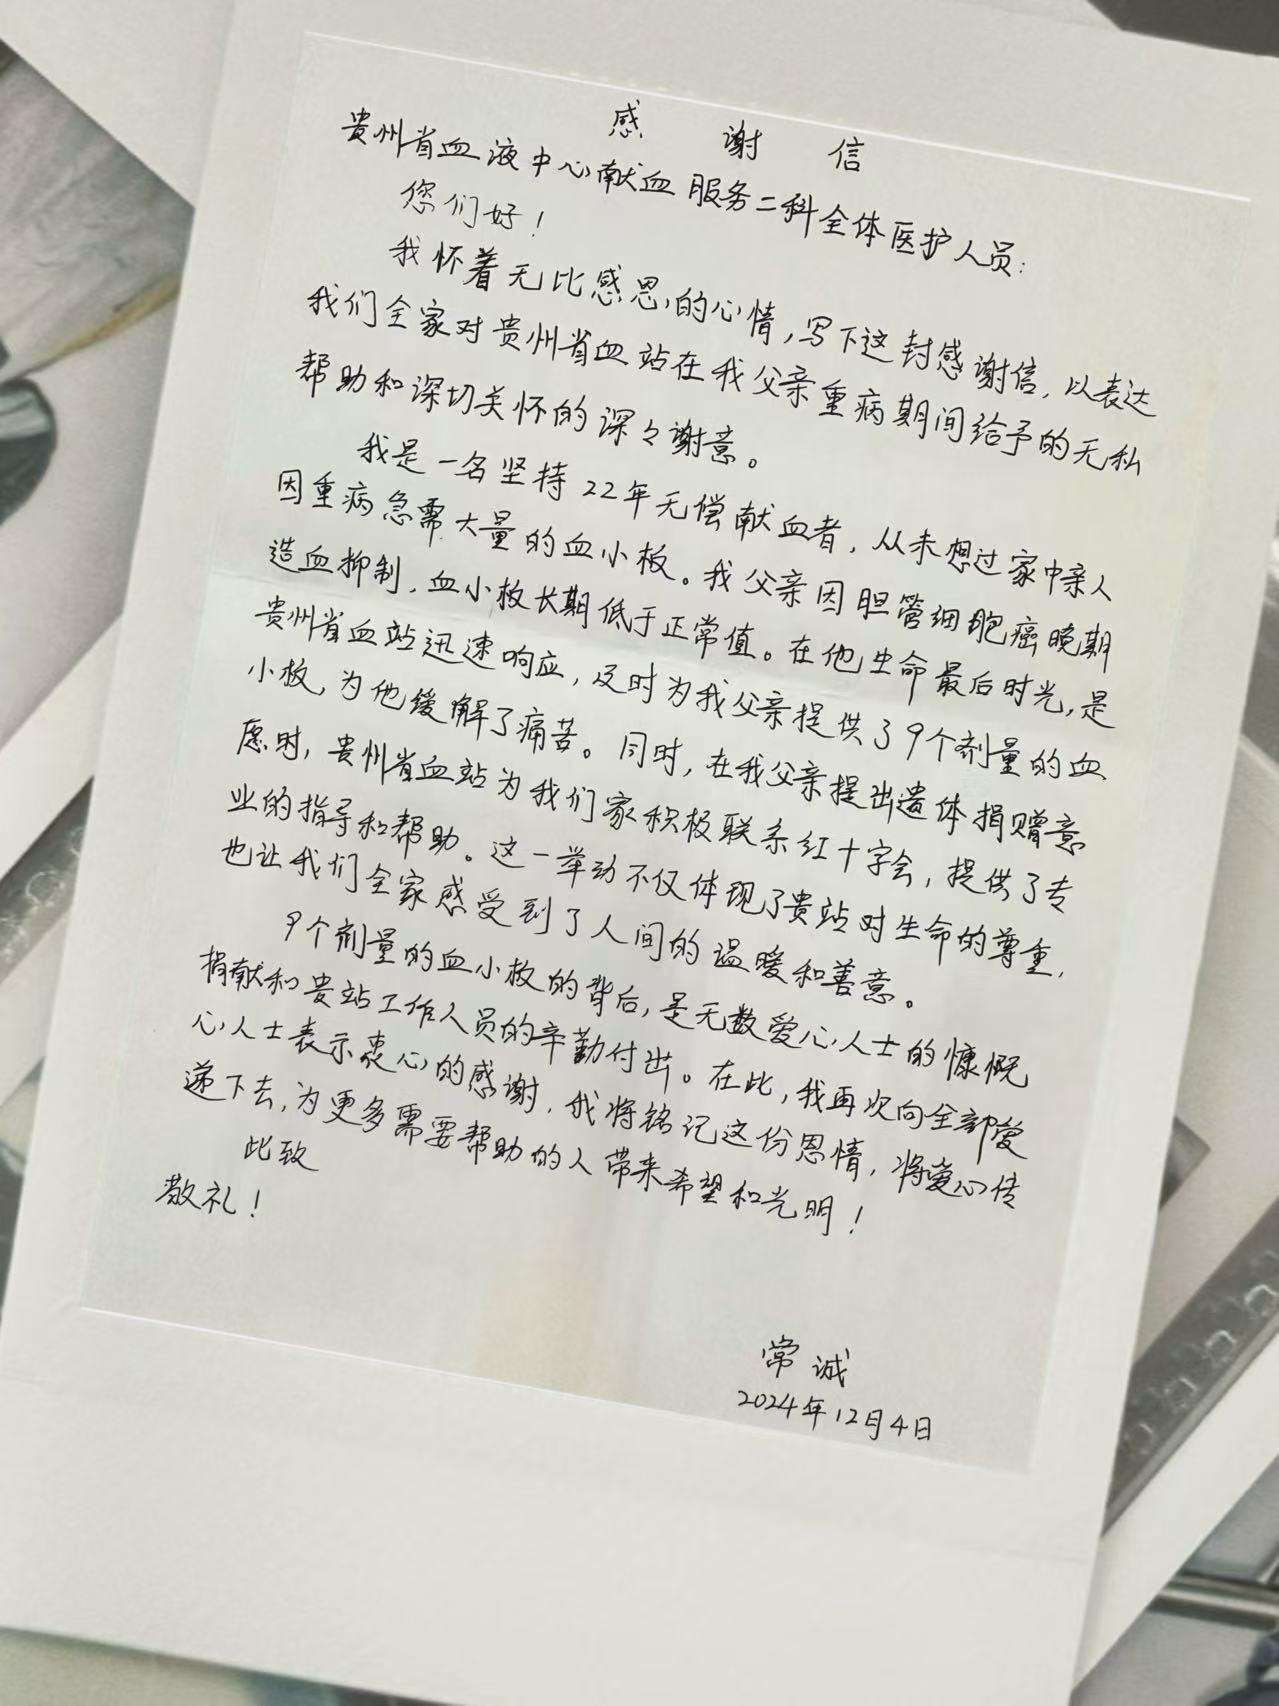 感谢信
贵州省血液中心献血服务二科全体医护人员:
您们好!
我怀着无比感恩的心情,写下这封感谢信,以表达
我们全家对贵州省血站在我父亲重病期间给予的无私
帮助和深切关怀的深々谢意。
我是一名坚持22年无偿献血者,从未想过家中亲人
因重病急需大量的血小板。我父亲因胆管细胞癌晚期
造血抑制,血小板长期低于正常值。在他生命最后时光,是
贵州省血站迅速响应,及时为我父亲提供了9个剂量的血
小板,为他缓解了痛苦。同时,在我父亲提出遗体捐赠意
愿时,贵州省血站为我们家积极联系红十字会,提供了专
业的指导和帮助。这一举动不仅体现了贵站对生命的尊重,
也让我们全家感受到了人间的温暖和善意。
9个剂量的血小板的背后,是无数爱心人士的慷慨
捐献和贵站工作人员的辛勤付出。在此,我再次向全部爱
心人士表示衷心的感谢,我将铭记这份恩情,将爱心传
递下去,为更多需要帮助的人带来希望和光明!
此致
敬礼!
常诚
2024年12月4日